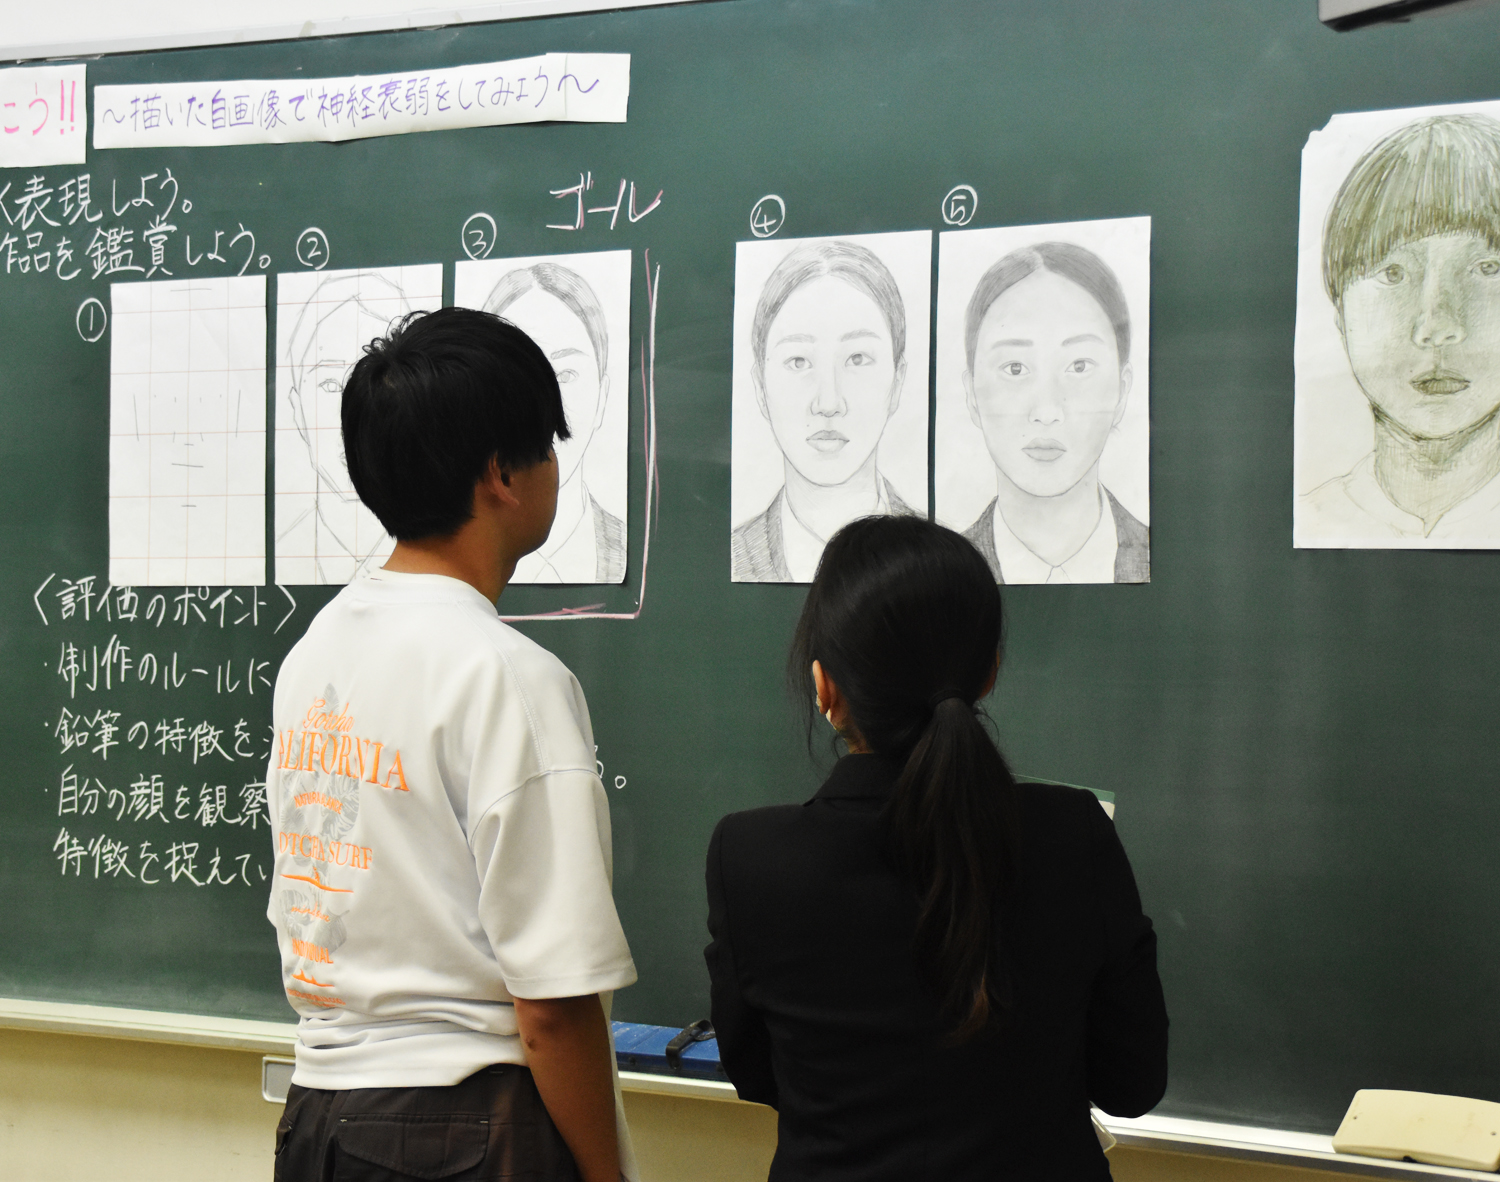 こう!!
〜描いた自画像で神経衰弱をしてみよう〜
く表現しよう。
作品を鑑賞しよう。
ゴール
①
②
③
④
⑤
〈評価のポイント〉
・制作のルールに
・鉛筆の特徴を
る。
・自分の顔を観察
特徴を捉えてい
Gotcha
ALIFORNIA
SURF